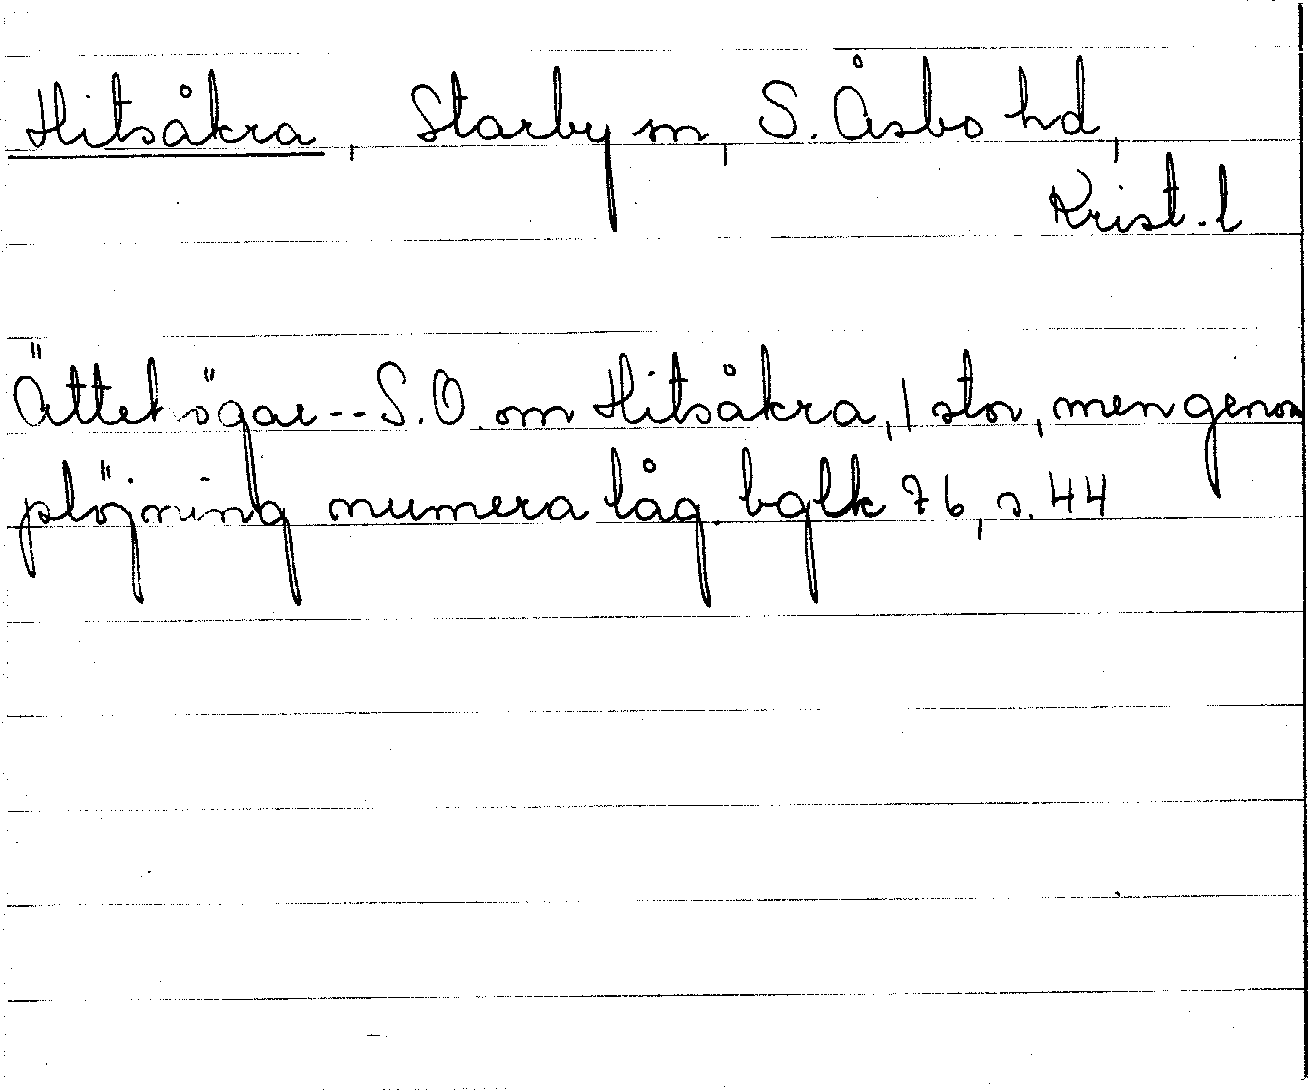 Hitsåkra, Starby sn, S. Åsbo hd,
Krist. l
Ättehögar -- S.O. om Hitsåkra, 1 stor, men genom
plöjning numera låg. bglk 76, s. 44